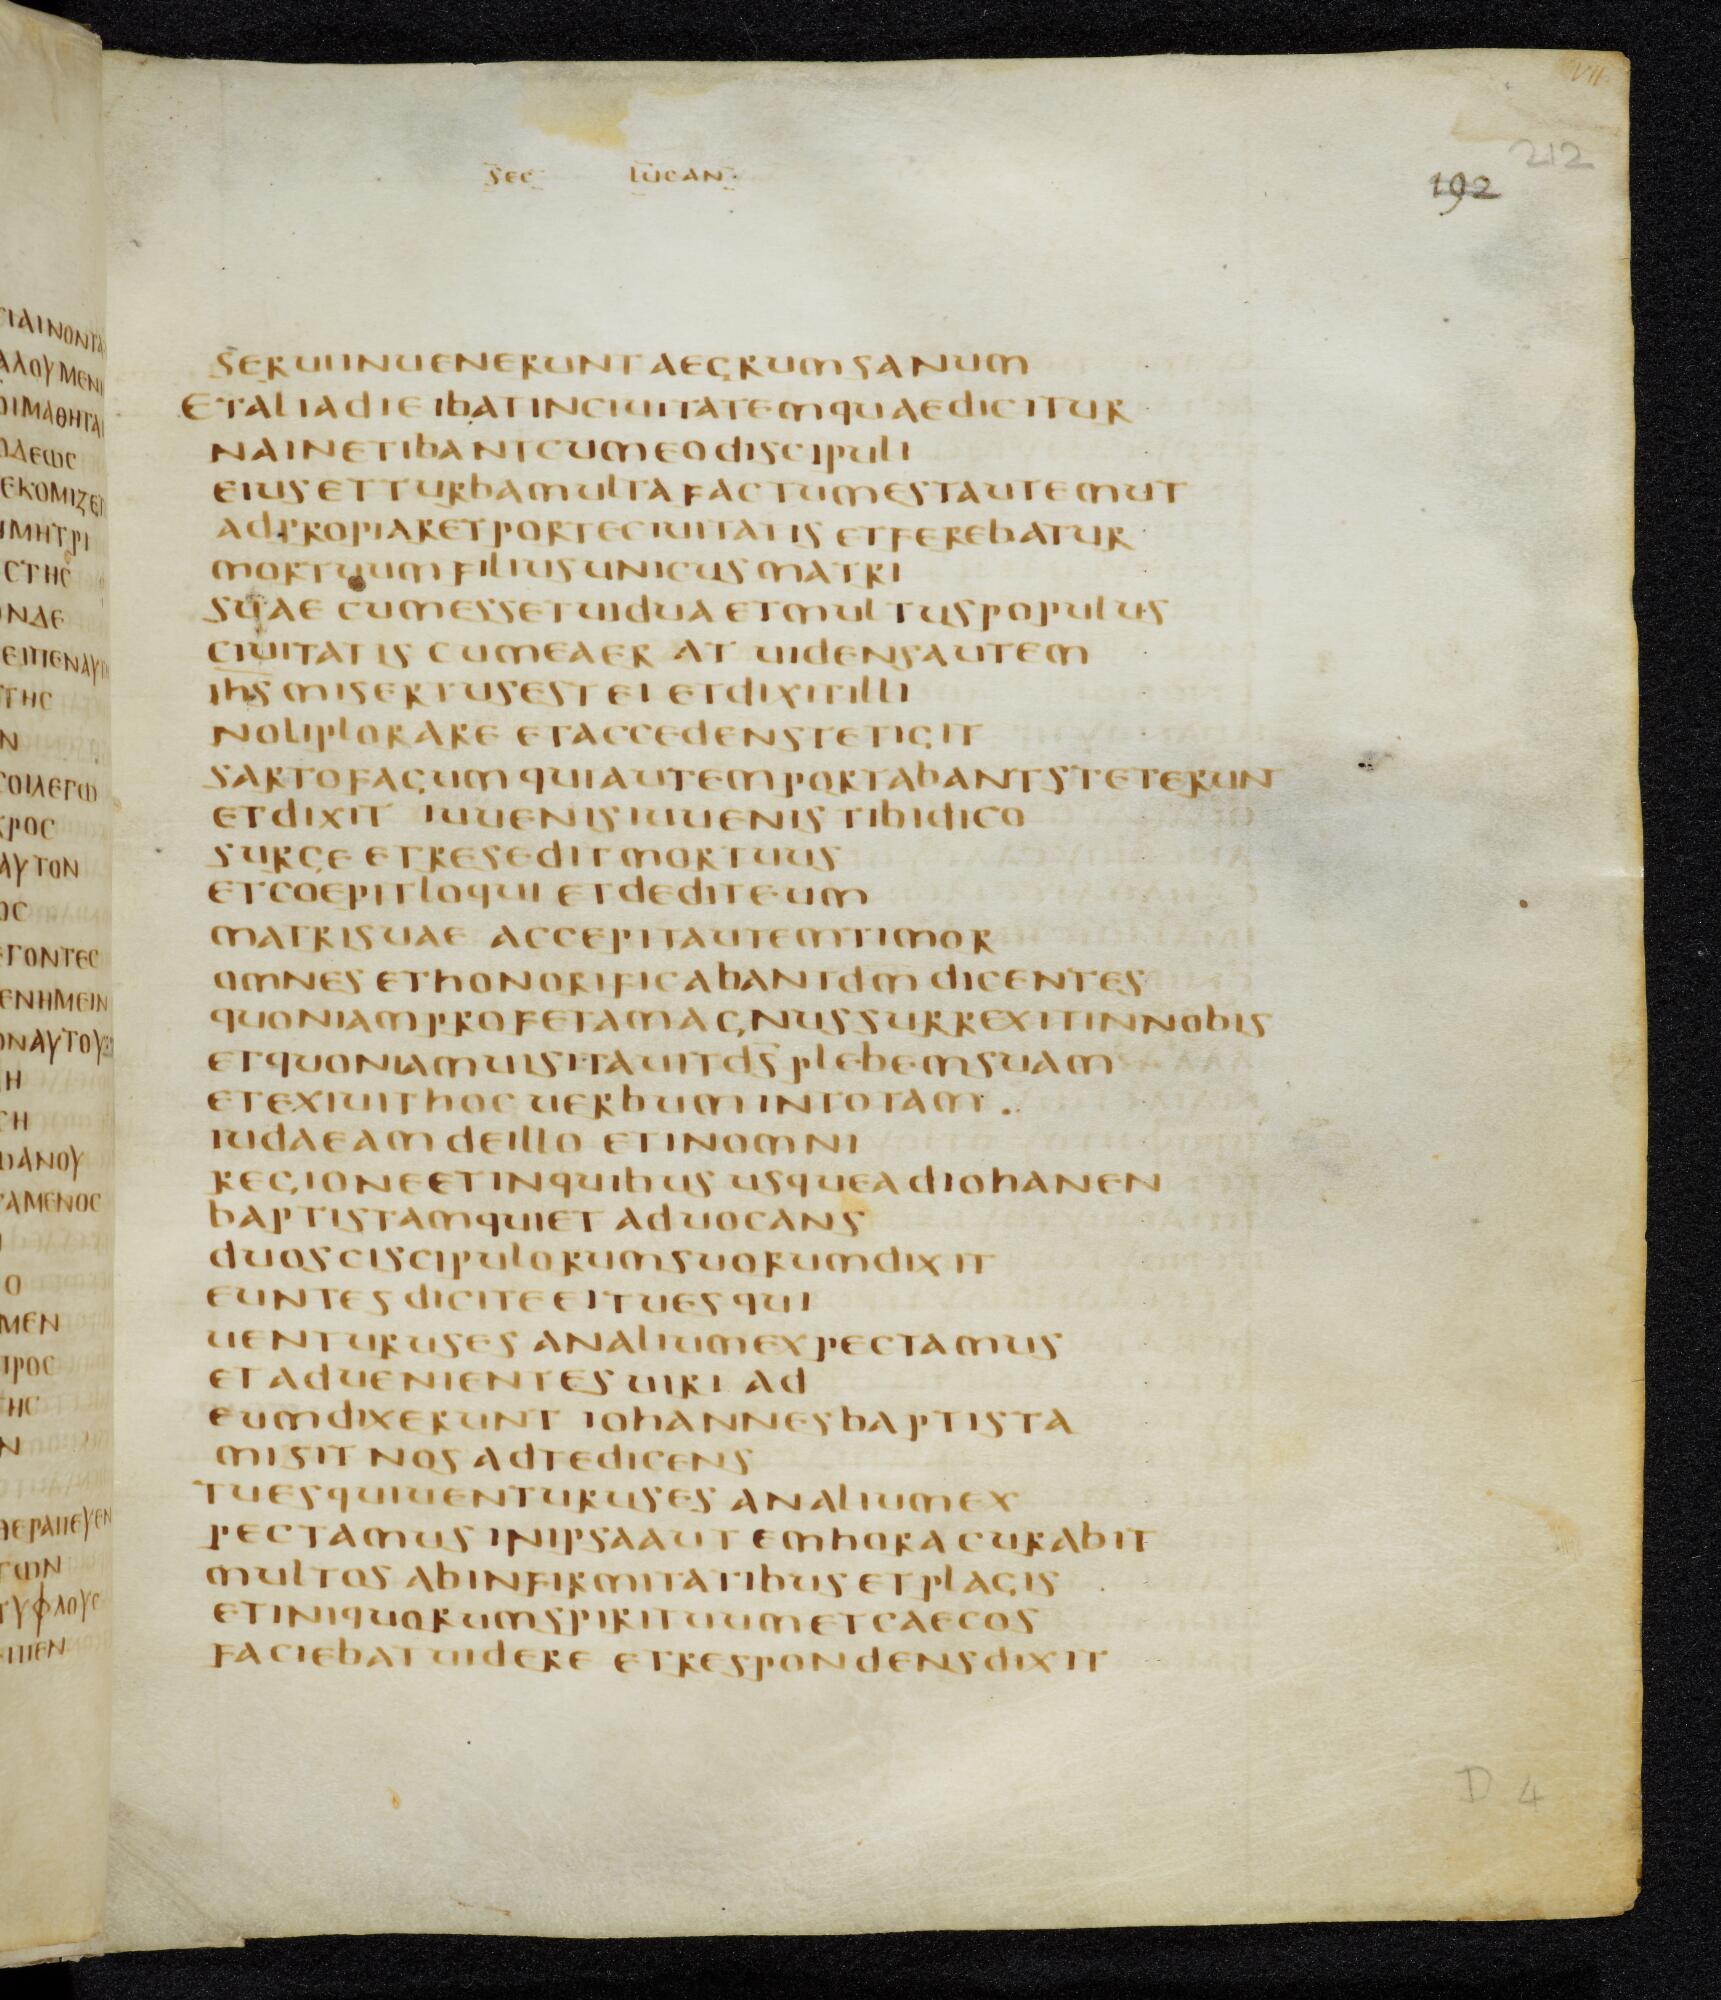 SEC LUCAN
212
192
SERUIINUENERUNTAEGRUMSANUM
ETALIADIEIBATINCIUITATEMQUAEDICITUR
NAINETIBANTCUMEODISCIPULI
EIUSETTURBAMULTAFACTUMESTAUTEMUT
ADPROPIARETPORTECIUITATISETFEREBATUR
MORTUUMFILIUSUNICUSMATRI
SUAECUMESSETUIDUAETMULTUSPOPULUS
CIUITATISCUMEAERATUIDENSAUTEM
IHSMISERTUSESTEIETDIXITILLI
NOLIPLORAREETACCEDENSTETIGIT
SARTOFAGUMQUIAUTEMPORTABANTSTETERUNT
ETDIXITIUUENISIUUENISTIBIDICO
SURGEETRESEDITMORTUUS
ETCOEPITLOQUIETDEDITEUM
MATRISUAEACCEPITAUTEMTIMOR
OMNESETHONORIFICABANTDMDICENTES
QUONIAMPROFETAMAGNUSSURREXITINNOBIS
ETQUONIAMUISITAUITDSPLEBEMSUAM
ETEXIUITHOCUERBUMINTOTAM.
IUDAEAMDEILLOETINOMNI
REGIONEETINQUIBUSUSQUEADIOHANEN
BAPTISTAMQUIETADUOCANS
DUOSCISCIPULORUMSUORUMDIXIT
EUNTESDICITEEITUESQUI
UENTURUSESANALIUMEXPECTAMUS
ETADUENIENTESUIRIAD
EUMDIXERUNTIOHANNESBAPTISTA
MISITNOSADTEDICENS
TUESQUIUENTURUSESANALIUMEX
PECTAMUSINIPSAAUTEMHORACURABIT
MULTOSABINFIRMITATIBUSETPLAGIS
ETINIQUORUMSPIRITUUMETCAECOS
FACIEBATUIDEREETRESPONDENSDIXIT
D 4